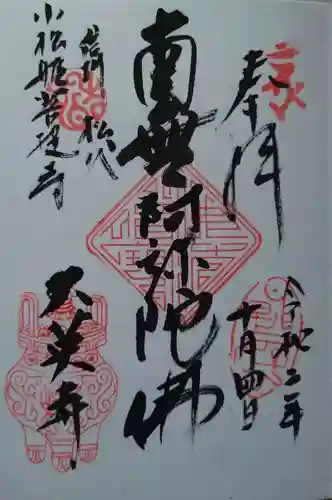 奉拝
令和二年
十月四日
南無阿弥陀佛
信州 松代
小松姫菩提寺
大英寺